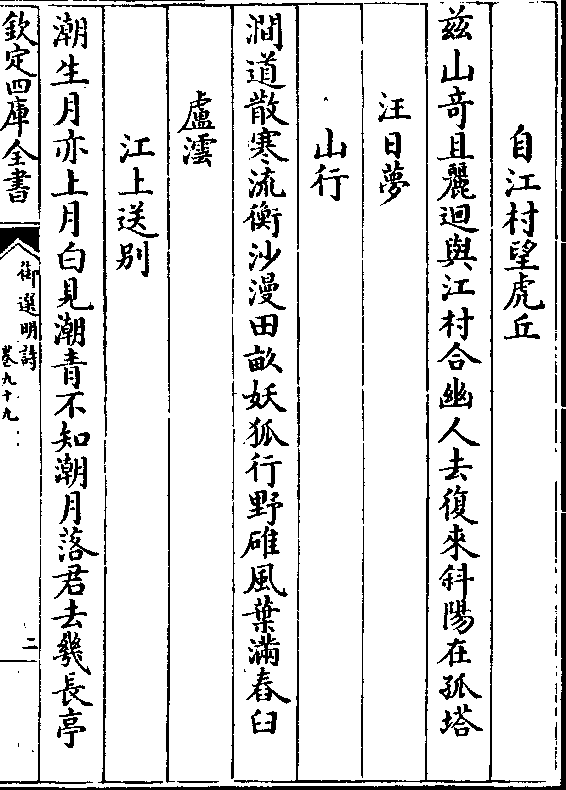 自江村望虎丘
兹山竒且麗迴與江村合幽人去復來斜陽在孤塔
汪日夢
山行
澗道散寒流衡沙漫田畝妖狐行野碓風葉滿舂臼
盧澐
江上送别
潮生月亦上月白見潮青不知潮月落君去幾長亭
欽定四庫全書
御選明詩
卷九十九
二